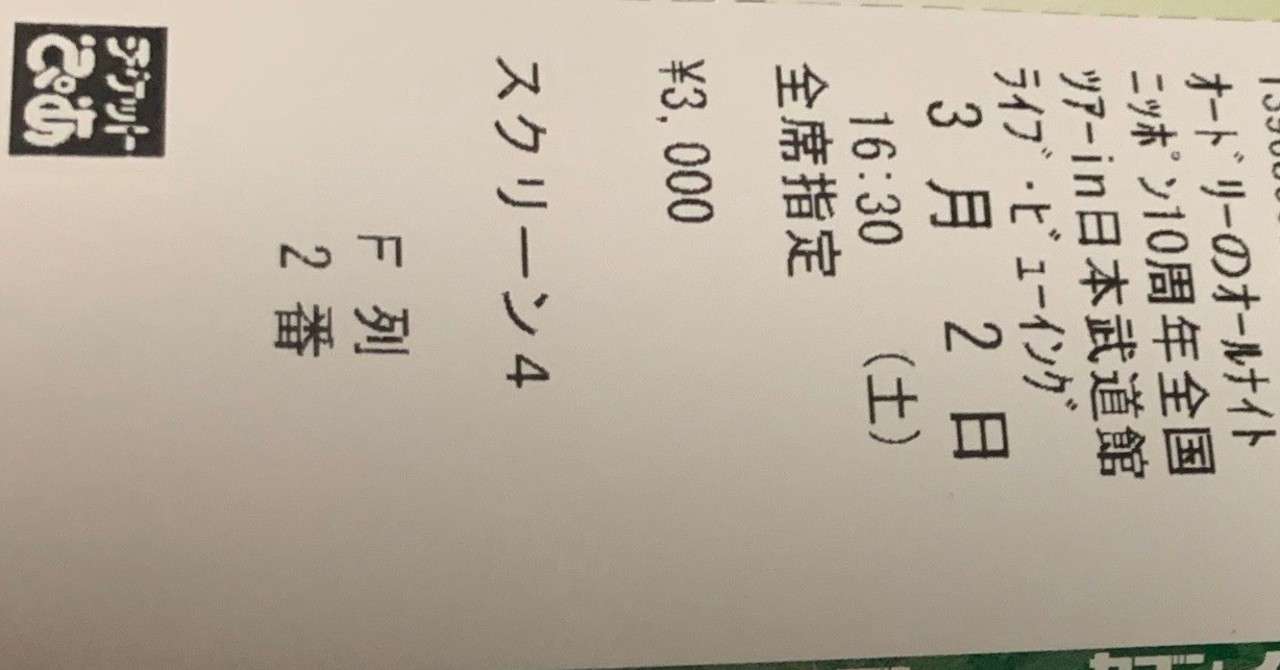 オードリーのオールナイト
ニッポン10周年全国
ツアーin日本武道館
ライブ・ビューイング
3月 2日
16:30 (土)
全席指定
¥3,000
スクリーン4
F列
2番
チケット
ぴあ